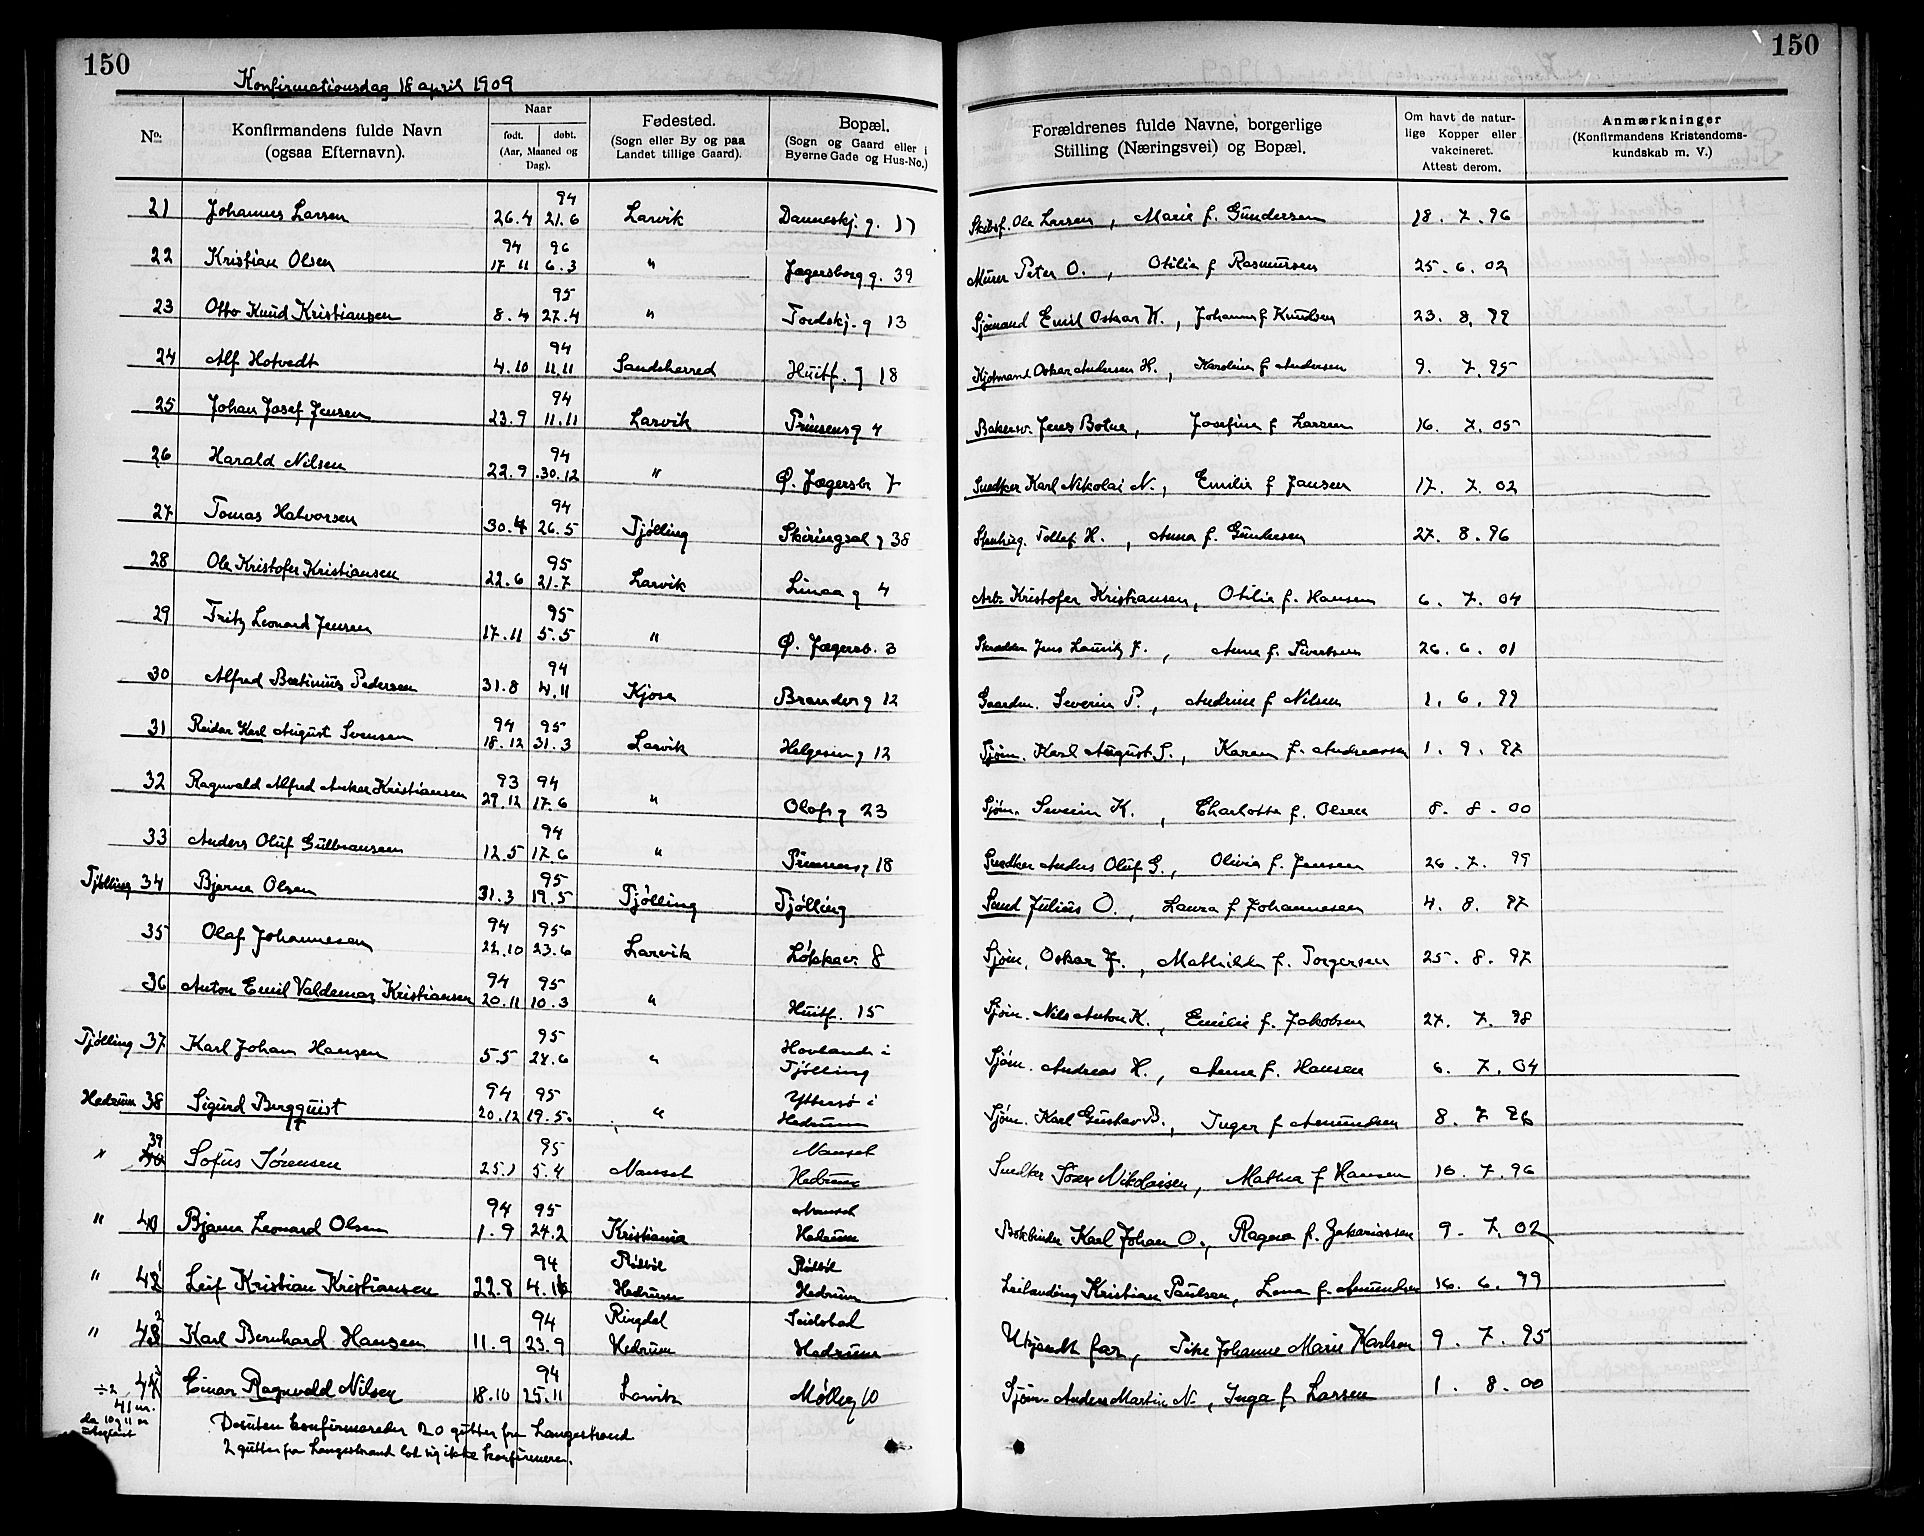 150
150
Konfirmationsdag 18 april 1909
No. Konfirmandens fulde Navn (ogsaa Efternavn). Naar født. døbt. (Aar, Maaned og Dag). Fødested. (Sogn eller By og paa Landet tillige Gaard). Bopæl. (Sogn og Gaard eller i Byerne Gade og Hus-No.) Forældrenes fulde Navne, borgerlige Stilling (Næringsvei) og Bopæl. Om havt de naturlige Kopper eller vakcineret. Attest derom. Anmærkninger (Konfirmandens Kristendomskundskab m. V.)
21 Johannes Larsen 26.4 94 21.6 Larvik Danneskj. g. 17 Skibsf. Ole Larsen, Marie f. Gundersen 18.7.96
22 Kristian Olsen 94 17 11 96 6.3 " Jegersborg g. 39 Murer Peter O., Otilie f Rasmussen 25.6.02
23 Otto Knud Kristiansen 8.4 95 27.4 " Tordskj. g 13 Sjømand Emil Oskar K., Johanne f Knudsen 23.8.99
24 Alf Hotvedt 4.10 94 11.11 Sandeherred Huitf. g 18 Oskar Andersen H., Karoline f Andersen 9. 7.95
25 Johan Josef Jensen 23.9 94 11.11 Larvik Prinsensg 4 Bakersv. Jens Bolne, Josefine f Larsen 16. 7. 05
26 Harald Nilsen 22.9 94 30.12 " Ø. Jægersb. 7 Snedker Karl Nikolai N., Emilie f Jansen 17. 7.02
27 Tomas Halvorsen 30.4 94 26.5 Tjølling Skiringsal g 38 Stenhug. Tollef H., Anna f. Gundersen 27. 8.96
28 Ole Kristofer Kristiansen 22.6 95 21.7 Larvik Linaa g 4 Arb. Kristofer Kristiansen, Otilie f. Hansen 6. 7. 04
29 Fritz Leonard Jensen 17.11 95 5.5 " Ø. Jægersb. 3 Skrædder Jens Lauritz J., Anne f. Sivertsen 26.6.01
30 Alfred Bertinius Pedersen 31.8 94 4.11 Kjose Brander g 12 Gaardm. Severin P., Andrine f Nilsen 1. 6. 99
31 Reidar Karl August Svensen 94 18.12 95 31.3 Larvik Helgesen g 12 Sjøm. Karl August S., Karen f. Andreassen 1. 9. 97
32 Ragnvald Alfred Anker Kristiansen 93 29.12 94 17.6 " Olafs g 23 Sjøm. Severin K., Charlotte f. Olsen 8. 8. 00
33 Anders Oluf Gulbransen 12.5 94 17.6 " Prinsens g 18 Snedker Anders Oluf G., Olivia f. Jensen 26. 7. 99
Tjølling 34 Bjarne Olsen 31.3 95 19.5 Tjølling Tjølling Smed Julius O., Laura f Johannesen 4. 8. 97
35 Olaf Johannesen 94 22.10 95 23.6 Larvik Løkkev. 8 Sjøm. Oskar J., Mathilde f. Torgersen 25. 8. 97
36 Anton Emil Valdemar Kristiansen 94 20.11 95 10.3 " Huitf. 15 Sjøm. Nils Anton K., Emilie f. Jakobsen 27. 7. 98
Tjølling 37 Karl Johan Hansen 5.5 95 28.6 " Hovland i Tjølling Sjøm. Andreas H., Anne f. Hansen 6. 7. 04
Hedrum 38 Sigurd Bergquist 94 20.12 95 19.5 " Yttersø i Hedrum Sjøm. Karl Gustav B., Inger f Amundsen 8. 7 96
" 39 Sofus Sørensen 25.1 95 5.4 Nanset Nanset Hedrum Snedker Søren Nikolaisen, Mathea f Hansen 10. 7.96
" 40 Bjarne Leonard Olsen 94 1.9 95 24.2 Kristiania Nanset Hedrum Bokbinder Karl Johan O., Ragna f. Zakariassen 9. 7.02
" 41 Leif Kristian Kristiansen 22.8 94 4.11 Hedrum Hedrum Leilænding Kristian Paulsen, Lena f. Amundsen 16.6.99
" 42 Karl Bernhard Hansen 11.9 94 23.9 Ringdal Hedrum Seierstad Hedrum Ukjendt far, Pike Johanne Marie Karlsen 9. 7. 95
÷2 43 Einar Ragnvald Nilsen 18.10 94 25.11 Larvik Møller g 10 Sjøm Anders Martin N., Inga f Larsen 1. 8. 00
41 m.
da 10 g 11 er
Desuten konfirmereder 20 gutter fra Langestrand
2 gutter fra Langestrand lod sig ikke konfirmere.